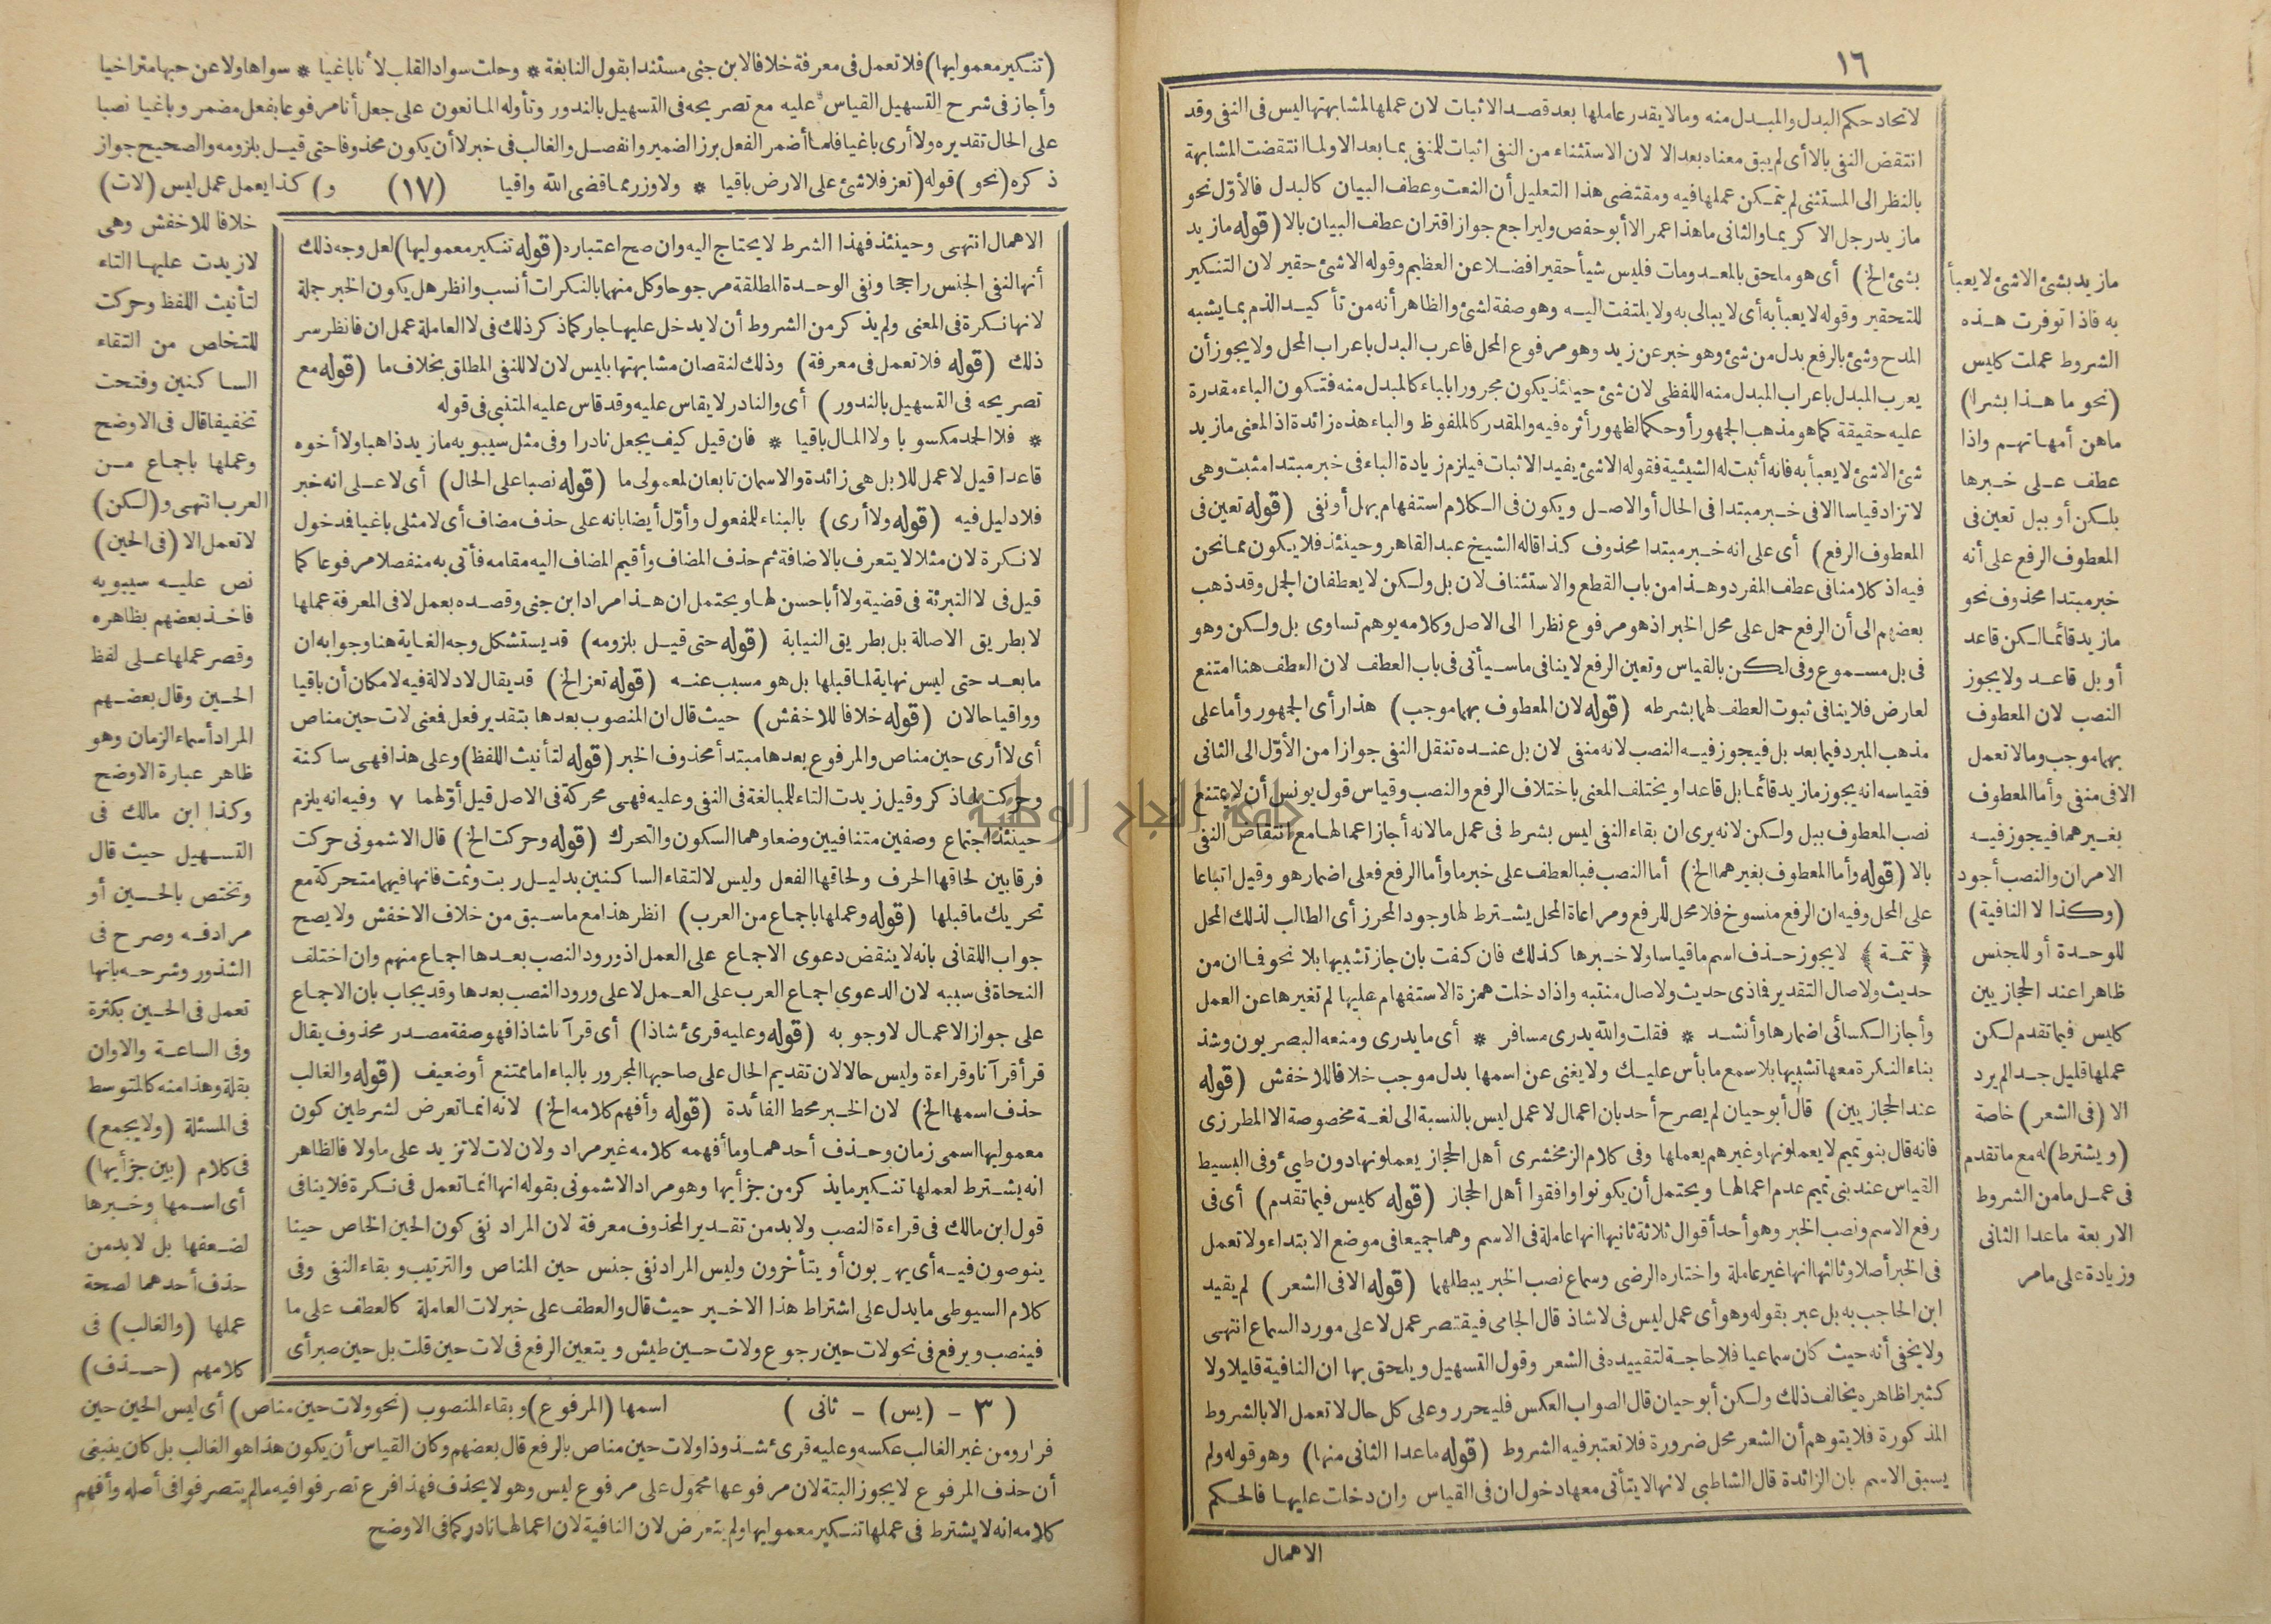 ١٦
لاتحاد حكم البدل والمبدل منه ومالا يقدر عاملها بعد قصد الاثبات لان عملها لمشابهتها ليس فى النفى وقد
انتقض النفى بالا أى لم يبق معناه بعد الا لان الاستثناء من النفى اثبات للمنفى بما بعد الا ولما انتقضت المشابهة
بالنظر الى المستثنى لم يتمكن عملها فيه ومقتضى هذا التعليل أن النعت وعطف البيان كالبدل فالأوّل نحو
ما زيد رجل الا كريما والثانى ما هذا عمر الا أبو حفص وليراجع جواز اقتران عطف البيان بالا (قوله ما زيد
بشئ الخ) أى هو ملحق بالمعدومات فليس شيأ حقيرا فضلا عن العظيم وقوله الا شئ حقير لان التنكير
للتحقير وقوله لا يعبأ به أى لا يبالى به ولا يلتفت اليه وهو صفة لشئ والظاهر أنه من تأكيد الذم بما يشبه
المدح وشئ بالرفع بدل من شئ وهو خبر عن زيد وهو مرفوع المحل فاعرب البدل باعراب المحل ولا يجوز أن
يعرب المبدل باعراب المبدل منه اللفظى لان شئ حينئذ يكون مجرورا بالباء كالمبدل منه فتكون الباء مقدرة
عليه حقيقة كما هو مذهب الجمهور أو حكما لظهور أثره فيه والمقدر كالملفوظ والباء هذه زائدة اذ المعنى ما زيد
شئ الا شئ لا يعبأ به فانه أثبت له الشيئية فقوله الا شئ يفيد الاثبات فيلزم زيادة الباء فى خبر مبتدا مثبت وهى
لا تزاد قياسا الا فى خبر مبتدا فى الحال أو الاصل ويكون فى الكلام استفهام بهل أو نفى (قوله تعين فى
المعطوف الرفع) أى على انه خبر مبتدا محذوف كذا قاله الشيخ عبد القاهر وحينئذ فلا يكون مما نحن
فيه اذ كلامنا فى عطف المفرد وهذا من باب القطع والاستئناف لان بل ولكن لا يعطفان الجمل وقد ذهب
بعضهم الى أن الرفع حمل على محل الخبر اذ هو مرفوع نظرا الى الاصل وكلامه يوهم تساوى بل ولكن وهو
فى بل مسموع وفى لكن بالقياس وتعين الرفع لا ينافى ما سيأتى فى باب العطف لان العطف هنا امتنع
لعارض فلا ينافى ثبوت العطف لهما بشرطه (قوله لان المعطوف بهما موجب) هذا رأى الجمهور وأما على
مذهب المبرد فيما بعد بل فيجوز فيه النصب لانه منفى لان بل عنده تنقل النفى جوازا من الأوّل الى الثانى
فقياسه انه يجوز ما زيد قائما بل قاعدا ويختلف المعنى باختلاف الرفع والنصب وقياس قول يونس أن لا يمتنع
نصب المعطوف ببل ولكن لانه يرى ان بقاء النفى ليس بشرط فى عمل ما لانه أجاز اعمالها مع انتقاض النفى
بالا (قوله وأما المعطوف بغيرهما الخ) أما النصب فبالعطف على خبر ما وأما الرفع فعلى اضمار هو وقيل اتباعا
على المحل وفيه ان الرفع منسوخ فلا محل للرفع ومراعاة المحل يشترط لها وجود المحرز أى الطالب لذلك المحل
﴿ تتمة ﴾ لا يجوز حذف اسم ما قياسا ولا خبرها كذلك فان كفت بان جاز تشبيها بلا نحو فا ان من
حديث ولا صال التقدير فاذى حديث ولا صال منتبه واذا دخلت همزة الاستفهام عليها لم تغيرها عن العمل
وأجاز الكسائى اضمارها وأنشد * فقلت والله يدرى مسافر * أى ما يدرى ومنعه البصريون وشذ
بناء النكرة معها تشبيها بلا سمع ما بأس عليك ولا يغنى عن اسمها بدل موجب خلافا للاخفش (قوله
عند الحجازيين) قال أبو حيان لم يصرح أحد بان اعمال لا عمل ليس بالنسبة الى لغة مخصوصة الا المطرزى
فانه قال بنو تميم لا يعملونها وغيرهم يعملها وفى كلام الزمخشرى أهل الحجاز يعملونها دون طيئ وفى البسيط
القياس عند بنى تميم عدم اعمالها ويحتمل أن يكونوا وافقوا أهل الحجاز (قوله كليس فيما تقدم) أى فى
رفع الاسم ونصب الخبر وهو أحد أقوال ثلاثة ثانيها انها عاملة فى الاسم وهما جميعا فى موضع الابتداء ولا تعمل
فى الخبر أصلا وثالثها انها غير عاملة واختاره الرضى وسماع نصب الخبر يبطلهما (قوله الا فى الشعر) لم يقيد
ابن الحاجب به بل عبر بقوله وهو أى عمل ليس فى لا شاذ قال الجامى فيقتصر عمل لا على مورد السماع انتهى
ولا يخفى أنه حيث كان سماعيا فلا حاجة لتقييده فى الشعر وقول التسهيل ويلحق بها ان النافية قليلا ولا
كثيرا ظاهره يخالف ذلك ولكن أبو حيان قال الصواب العكس فليحرر وعلى كل حال لا تعمل الا بالشروط
المذكورة فلا يتوهم أن الشعر محل ضرورة فلا تعتبر فيه الشروط (قوله ما عدا الثانى منها) وهو قوله ولم
يسبق الاسم بان الزائدة قال الشاطبى لانها لا يتأتى معها دخول ان فى القياس وان دخلت عليها فالحكم
الاهمال
ما زيد بشئ الا شئ لا يعبأ
به فاذا توفرت هذه
الشروط عملت كليس
(نحو ما هذا بشرا)
ما هن أمهاتهم واذا
عطف على خبرها
بلكن أو ببل تعين فى
المعطوف الرفع على أنه
خبر مبتدا محذوف نحو
ما زيد قائما لكن قاعد
أو بل قاعد ولا يجوز
النصب لان المعطوف
بهما موجب وما لا تعمل
الا فى منفى وأما المعطوف
بغيرهما فيجوز فيه
الامران والنصب أجود
(وكذا لا النافية)
للوحدة أو للجنس
ظاهرا عند الحجازيين
كليس فيما تقدم لكن
عملها قليل جدا لم يرد
الا (فى الشعر) خاصة
(ويشترط) له مع ما تقدم
فى عمل ما من الشروط
الاربعة ما عدا الثانى
وزيادة على ما مر
(تنكير معموليها) فلا تعمل فى معرفة خلافا لابن جنى مستندا بقول النابغة * وحلت سواد القلب لا أنا باغيا * سواها ولا عن حبها متراخيا
وأجاز فى شرح التسهيل القياس عليه مع تصريحه فى التسهيل بالندور وتأوله المانعون على جعل أنا مرفوعا بفعل مضمر وباغيا نصبا
على الحال تقديره ولا أرى باغيا فلما أضمر الفعل برز الضمير وانفصل والغالب فى خبر لا أن يكون محذوفا حتى قيل بلزومه والصحيح جواز
ذكره (نحو) قوله (تعز فلا شئ على الارض باقيا * ولا وزر مما قضى الله واقيا (١٧) و) كذا يعمل عمل ليس (لات)
خلافا للاخفش وهى
لا زيدت عليها التاء
لتأنيث اللفظ وحركت
للتخلص من التقاء
الساكنين وفتحت
تخفيفا قال فى الاوضح
وعملها باجماع من
العرب انتهى و(لكن)
لا تعمل الا (فى الحين)
نص عليه سيبويه
فاخذ بعضهم بظاهره
وقصر عملها على لفظ
الحين وقال بعضهم
المراد أسماء الزمان وهو
ظاهر عبارة الاوضح
وكذا ابن مالك فى
التسهيل حيث قال
وتختص بالحين أو
مرادفه وصرح فى
الشذور وشرحه بانها
تعمل فى الحين بكثرة
وفى الساعة والاوان
بقلة وهذا منه كالمتوسط
فى المسئلة (ولا يجمع)
فى كلام (بين جزأيها)
أى اسمها وخبرها
لضعفها بل لا بد من
حذف أحدهما لصحة
عملها (والغالب) فى
كلامهم (حذف)
الاهمال انتهى وحينئذ فهذا الشرط لا يحتاج اليه وان صح اعتباره (قوله تنكير معموليها) لعل وجه ذلك
أنها لنفى الجنس راجحا ونفى الوحدة المطلقة مرجوحا وكل منهما بالنكرات أنسب وانظر هل يكون الخبر جملة
لانها نكرة فى المعنى ولم يذكر من الشروط أن لا يدخل عليها جار كما ذكر ذلك فى لا العاملة عمل ان فانظر سر
ذلك (قوله فلا تعمل فى معرفة) وذلك لنقصان مشابهتها بليس لان لا للنفى المطلق بخلاف ما (قوله مع
تصريحه فى التسهيل بالندور) أى والنادر لا يقاس عليه وقد قاس عليه المتنبى فى قوله
* فلا الحمد مكسوبا ولا المال باقيا * فان قيل كيف يجعل نادرا وفى مثل سيبويه ما زيد ذاهبا ولا أخوه
قاعدا قيل لا عمل للا بل هى زائدة والاسمان تابعان لمعمولى ما (قوله نصبا على الحال) أى لا على انه خبر
فلا دليل فيه (قوله ولا أرى) بالبناء للمفعول وأوّل أيضا بانه على حذف مضاف أى لا مثلى باغيا فدخول
لا نكرة لان مثلا لا يتعرف بالاضافة ثم حذف المضاف وأقيم المضاف اليه مقامه فأتى به منفصلا مرفوعا كما
قيل فى لا التبرئة فى قضية ولا أبا حسن لها ويحتمل ان هذا مراد ابن جنى وقصده بعمل لا فى المعرفة عملها
لا بطريق الاصالة بل بطريق النيابة (قوله حتى قيل بلزومه) قد يستشكل وجه الغاية هنا وجوابه ان
ما بعد حتى ليس نهاية لما قبلها بل هو مسبب عنه (قوله تعز الخ) قد يقال لا دلالة فيه لامكان أن باقيا
وواقيا حالان (قوله خلافا للاخفش) حيث قال ان المنصوب بعدها بتقدير فعل فمعنى لات حين مناص
أى لا أرى حين مناص والمرفوع بعدها مبتدأ محذوف الخبر (قوله لتأنيث اللفظ) وعلى هذا فهى ساكنة
وحركت لما ذكر وقيل زيدت التاء للمبالغة فى النفى وعليه فهى محركة فى الاصل قيل أوّلهما ٧ وفيه انه يلزم
حينئذ اجتماع وصفين متنافيين وضعا وهما السكون والتحرك (قوله وحركت الخ) قال الاشمونى حركت
فرقا بين لحاقها الحرف ولحاقها الفعل وليس لالتقاء الساكنين بدليل ربت وثمت فانها فيهما متحركة مع
تحريك ما قبلها (قوله وعملها باجماع من العرب) انظر هذا مع ما سبق من خلاف الاخفش ولا يصح
جواب اللقانى بانه لا ينقض دعوى الاجماع على العمل اذ ورود النصب بعدها اجماع منهم وان اختلف
النحاة فى سببه لان الدعوى اجماع العرب على العمل لا على ورود النصب بعدها وقد يجاب بان الاجماع
على جواز الاعمال لا وجوبه (قوله وعليه قرئ شاذا) أى قرآنا شاذا فهو صفة مصدر محذوف يقال
قرأ قرآنا وقراءة وليس حالا لان تقديم الحال على صاحبها المجرور بالباء اما ممتنع أو ضعيف (قوله والغالب
حذف اسمها الخ) لان الخبر محط الفائدة (قوله وأفهم كلامه الخ) لانه انما تعرض لشرطين كون
معموليها اسمى زمان وحذف أحدهما وما أفهمه كلامه غير مراد ولان لات لا تزيد على ما ولا فالظاهر
انه يشترط لعملها تنكير ما يذكر من جزأيها وهو مراد الاشمونى بقوله انها انما تعمل فى نكرة فلا ينافى
قول ابن مالك فى قراءة النصب ولا بد من تقدير المحذوف معرفة لان المراد نفى كون الحين الخاص حينا
ينوصون فيه أى يهربون أو يتأخرون وليس المراد نفى جنس حين المناص والترتيب وبقاء النفى وفى
كلام السيوطى ما يدل على اشتراط هذا الاخير حيث قال والعطف على خبر لات العاملة كالعطف على ما
فينصب ويرفع فى نحو لات حين رجوع ولات حين طيش ويتعين الرفع فى لات حين قلت بل حين صبر أى
( ٣ - (يس) - ثانى ) اسمها (المرفوع) وبقاء المنصوب (نحو ولات حين مناص) أى ليس الحين حين
فرار ومن غير الغالب عكسه وعليه قرئ شذوذا ولات حين مناص بالرفع قال بعضهم وكان القياس أن يكون هذا هو الغالب بل كان ينبغى
أن حذف المرفوع لا يجوز البتة لان مرفوعها محمول على مرفوع ليس وهو لا يحذف فهذا فرع تصرفوا فيه ما لم يتصرفوا فى أصله وأفهم
كلامه انه لا يشترط فى عملها تنكير معموليها ولم يتعرض لان النافية لان اعمالها نادر كما فى الاوضح
جامعة النجاح الوطنية